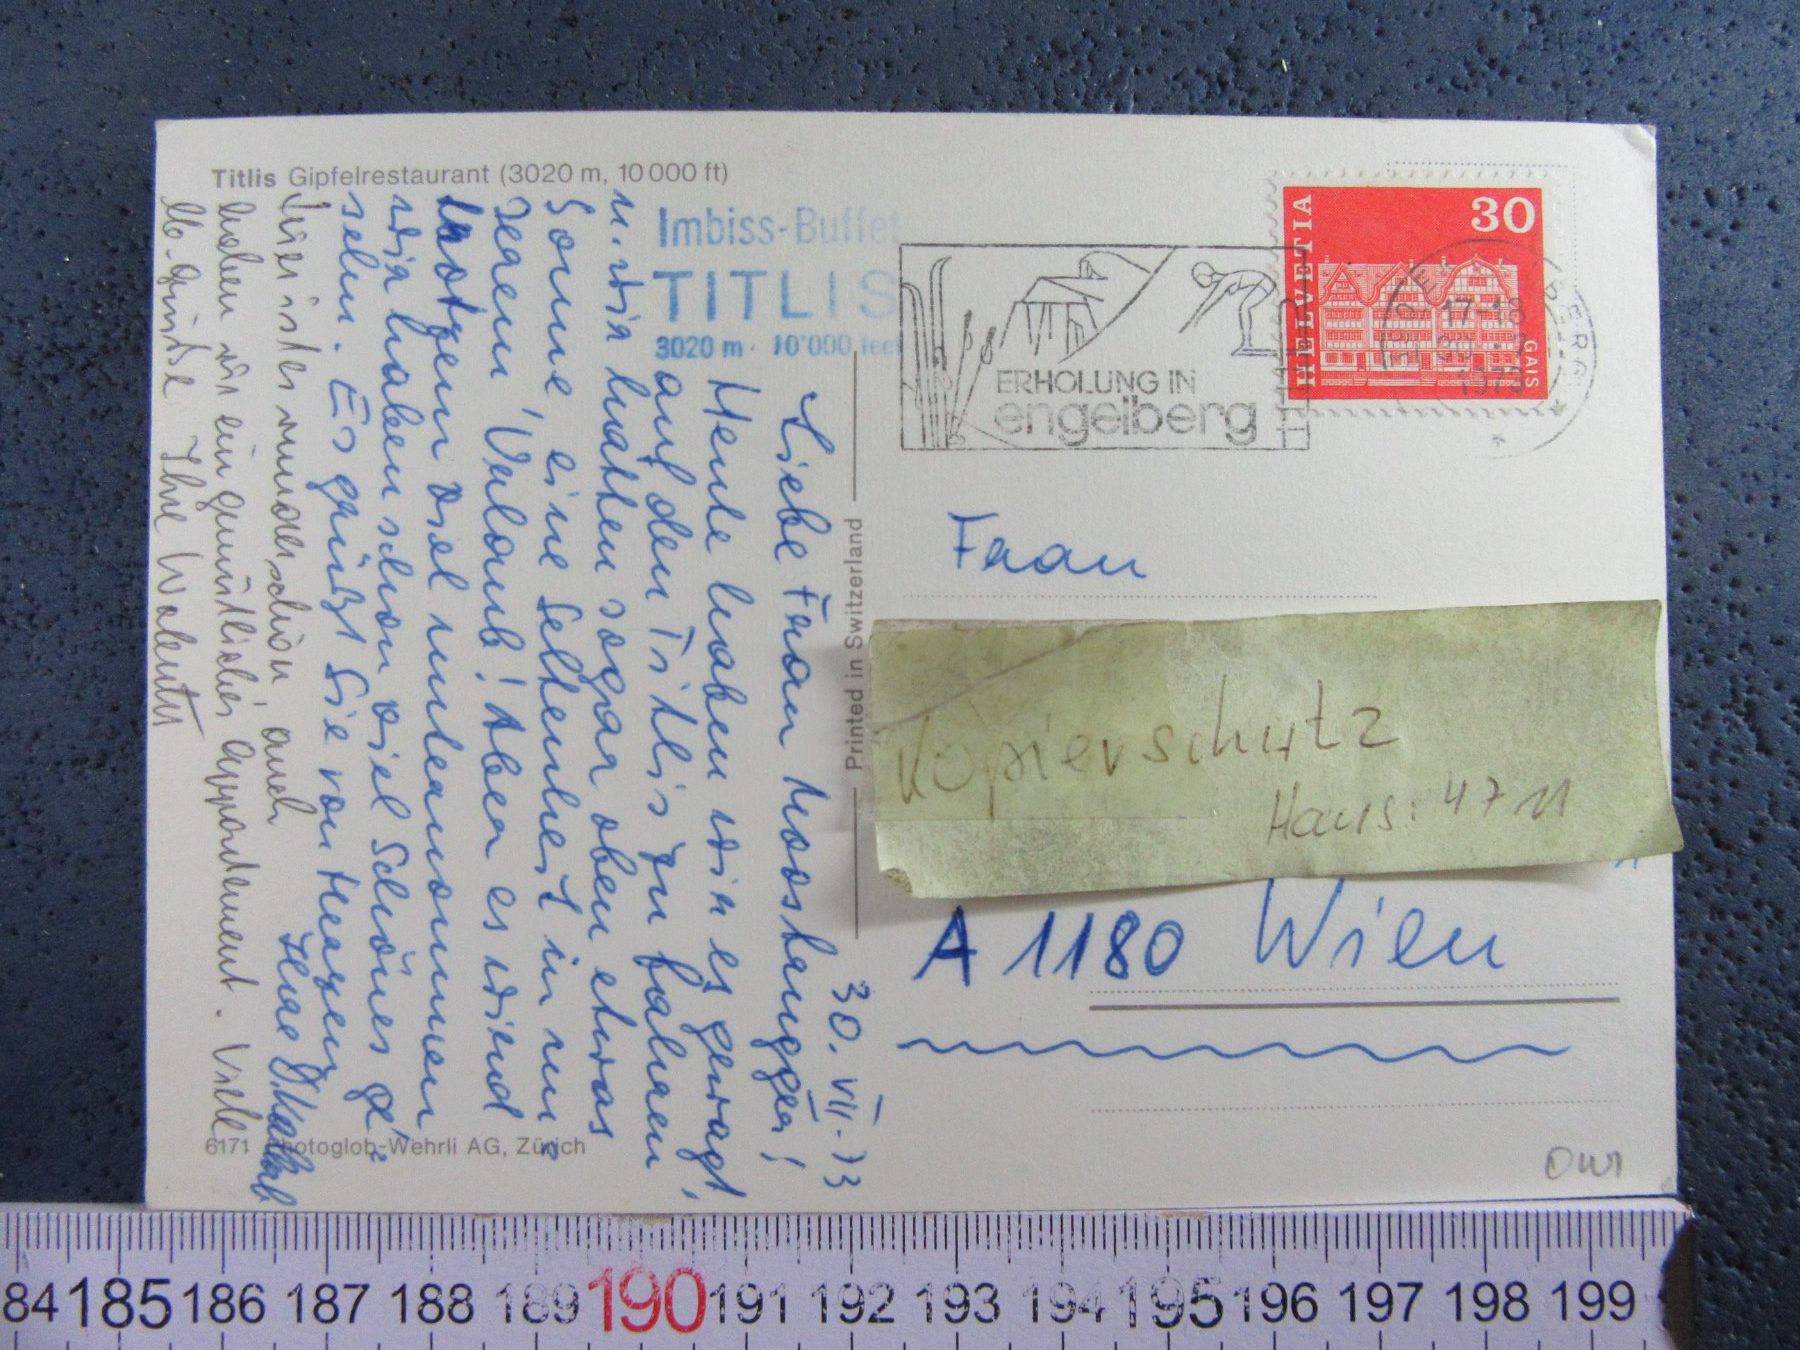 Titlis Gipfelrestaurant (3020 m, 10 000 ft)
Imbiss-Buffet
TITLIS
3020 m · 10'000 feet
ERHOLUNG IN
engelberg
HELVETIA
30
GAIS
17-18
30. VII. 73
Liebe Frau
Heute haben wir es gewagt,
auf den Titlis zu fahren
u. wir hatten sogar oben etwas
Sonne, eine Seltenheit in un-
serem Urlaub! Aber es wird
trotzdem viel unternommen
wir haben schon viel Schönes ge-
sehn. Es grüßt Sie von Herzen
Ihre
hier ist es wunderschön, auch
haben wir ein gemütliches Appartement. Viele
lb. Grüße Ihre
Printed in Switzerland
Frau
Kopierschutz
Haus: 4711
A 1180 Wien
6171 Photoglob-Wehrli AG, Zürich
84 185 186 187 188 189 190 191 192 193 194 195 196 197 198 199